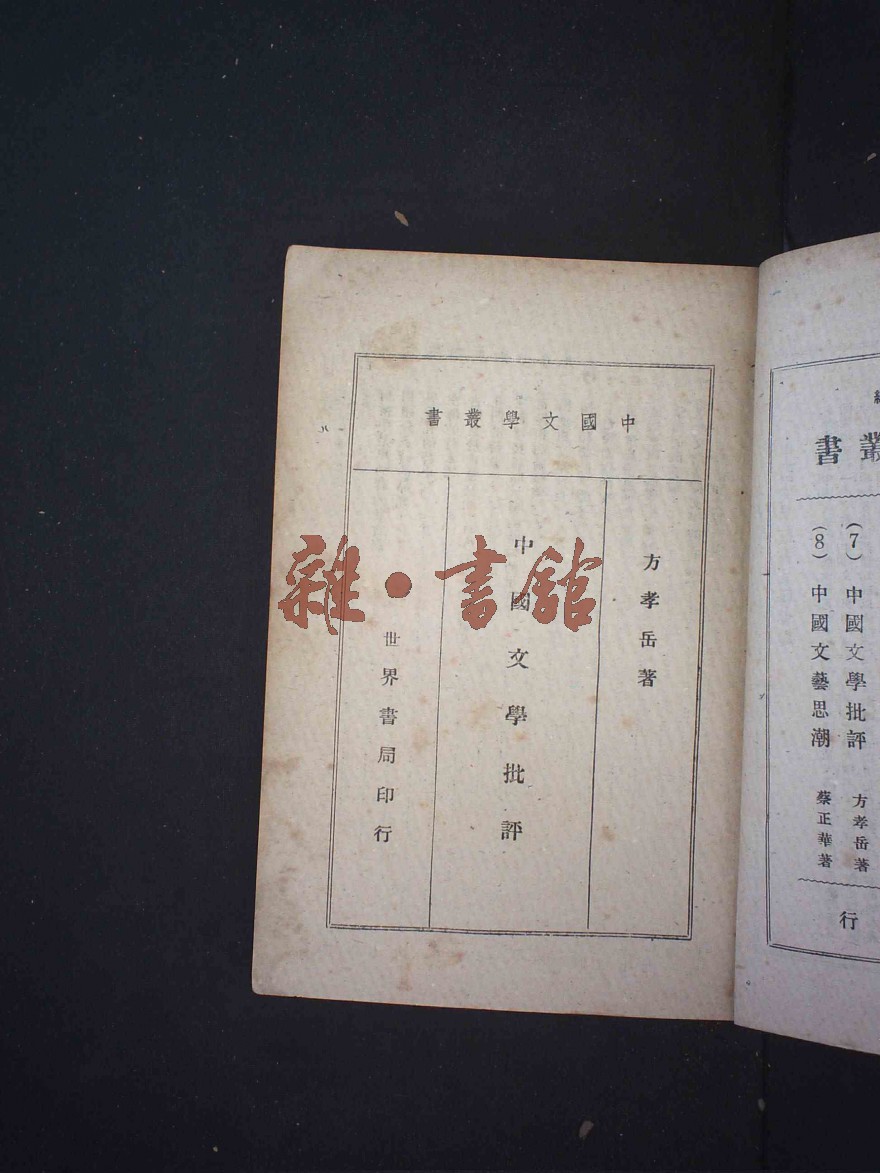 中國文學叢書
方孝岳著
中國文學批評
世界書局印行
雜·書館
叢書
(7)中國文學批評 方孝岳著
(8)中國文藝思潮 蔡正華著
行